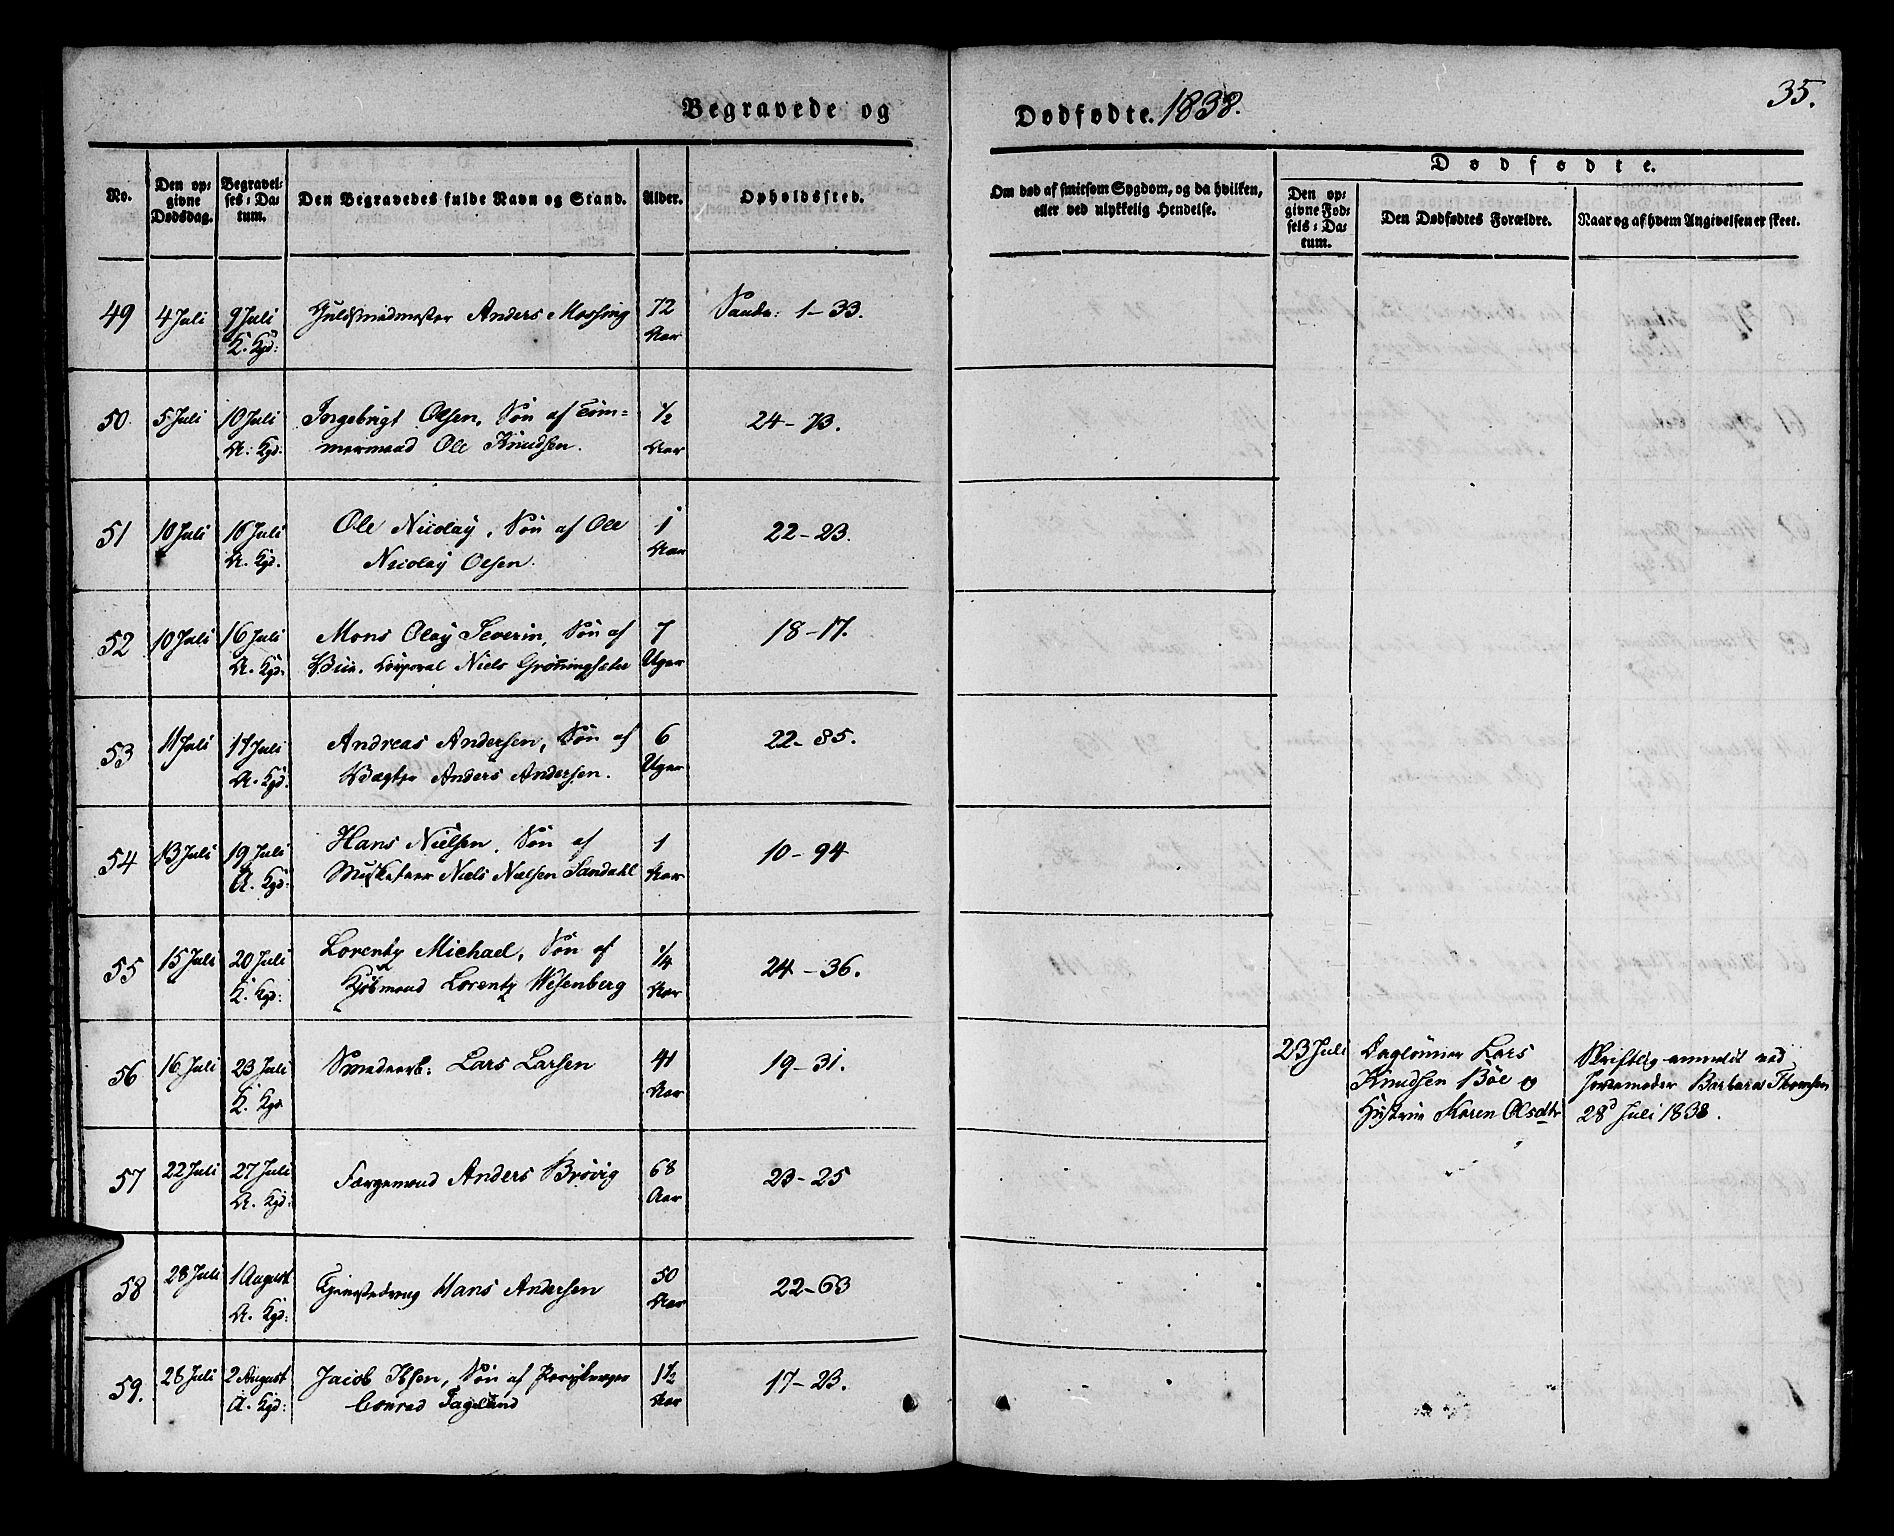 Begravede og
Dødfødte. 1838.
35.
No.
Den op-
givne
Dødsdag.
Begravel-
ses-Da-
tum.
Den Begravedes fulde Navn og Stand.
Alder.
Opholdssted.
Om død af smitsom Sygdom, og da hvilken,
eller ved ulykkelig Hendelse.
Dødfødte.
Den op-
givne Fød-
sels-Da-
tum.
Den Dødfødtes Forældre.
Naar og af hvem Angivelsen er skeet.
49 4 Juli 9 Juli Guldsmedmester Anders Mossing 72 Sandv: 1-33.
K. Kgd: Aar
50. 5 Juli 10 Juli Ingebrigt Olsen, Søn af Töm= 1/2 24-73.
A: Kgd: mermand Ole Knudsen. Aar
51 10 Juli 16 Juli Ole Nicolay, Søn af Ole 1 22-23.
A. Kgd. Nicolay Olsen. Aar
52 10 Juli 16 Juli Mons Olay Severin, Søn af 7 18-17.
A. Kgd. Corporal Niels Grønningsæter Uger
53 11 Juli 17 Juli Andreas Andersen, Søn af 6 22-85.
A. Kgd. Vægter Anders Andersen. Uger
54 13 Juli 19 Juli Hans Nielsen, Søn af 1 10-94
A. Kgd: Musketeer Niels Nielsen Sandahl Aar
55 15 Juli 20 Juli Lorentz Michael, Søn af 1/4 24-36.
K. Kgd: Kjøbmand Lorentz Wesenberg Aar
56 16 Juli 23 Juli Smedearb: Lars Larsen 41 19-31.
K. Kgd Aar
23 Juli Daglönner Lars
Knudsen Böe og
Hustrue Karen Olsdtr
Skriftlig anmeldt ved
Jordemoder Barbara Thomsen
28d Juli 1838.
57 22 Juli 27 Juli Færgemand Anders Brövig 68 23-25
A. Kgd: Aar
58 28 Juli 1 August Hans Andersen 50 22-63
A. Kgd: Aar
59. 28 Juli 2 August Jacob Ibsen, Søn af 1 1/2 17-23.
A. Kgd: Conrad Fagelund Aar